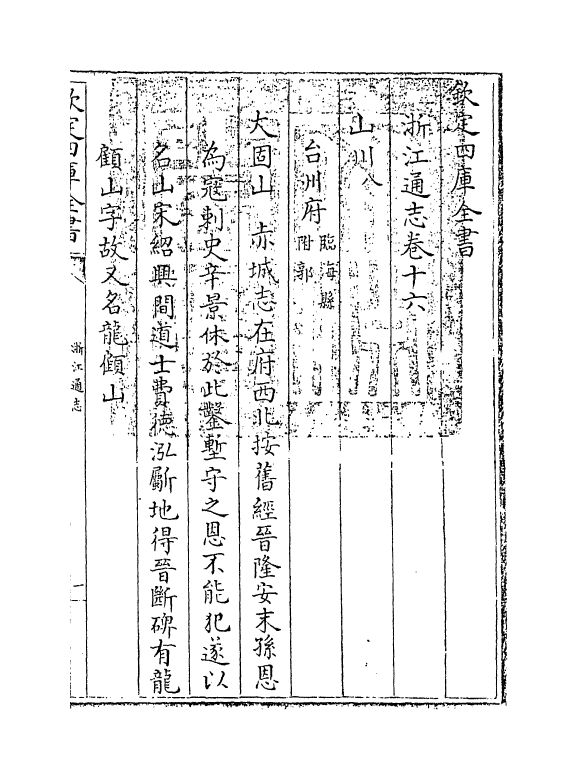 欽定四庫全書
浙江通志卷十六
山川八
台州府 臨海縣附郭
大固山 赤城志在府西北按舊經晉隆安末孫恩
為寇刺史辛景休於此鑿塹守之恩不能犯遂以
名山宋紹興間道士費徳泓斸地得晉斷碑有龍
顧山字故又名龍顧山
欽定四庫全書
浙江通志
一